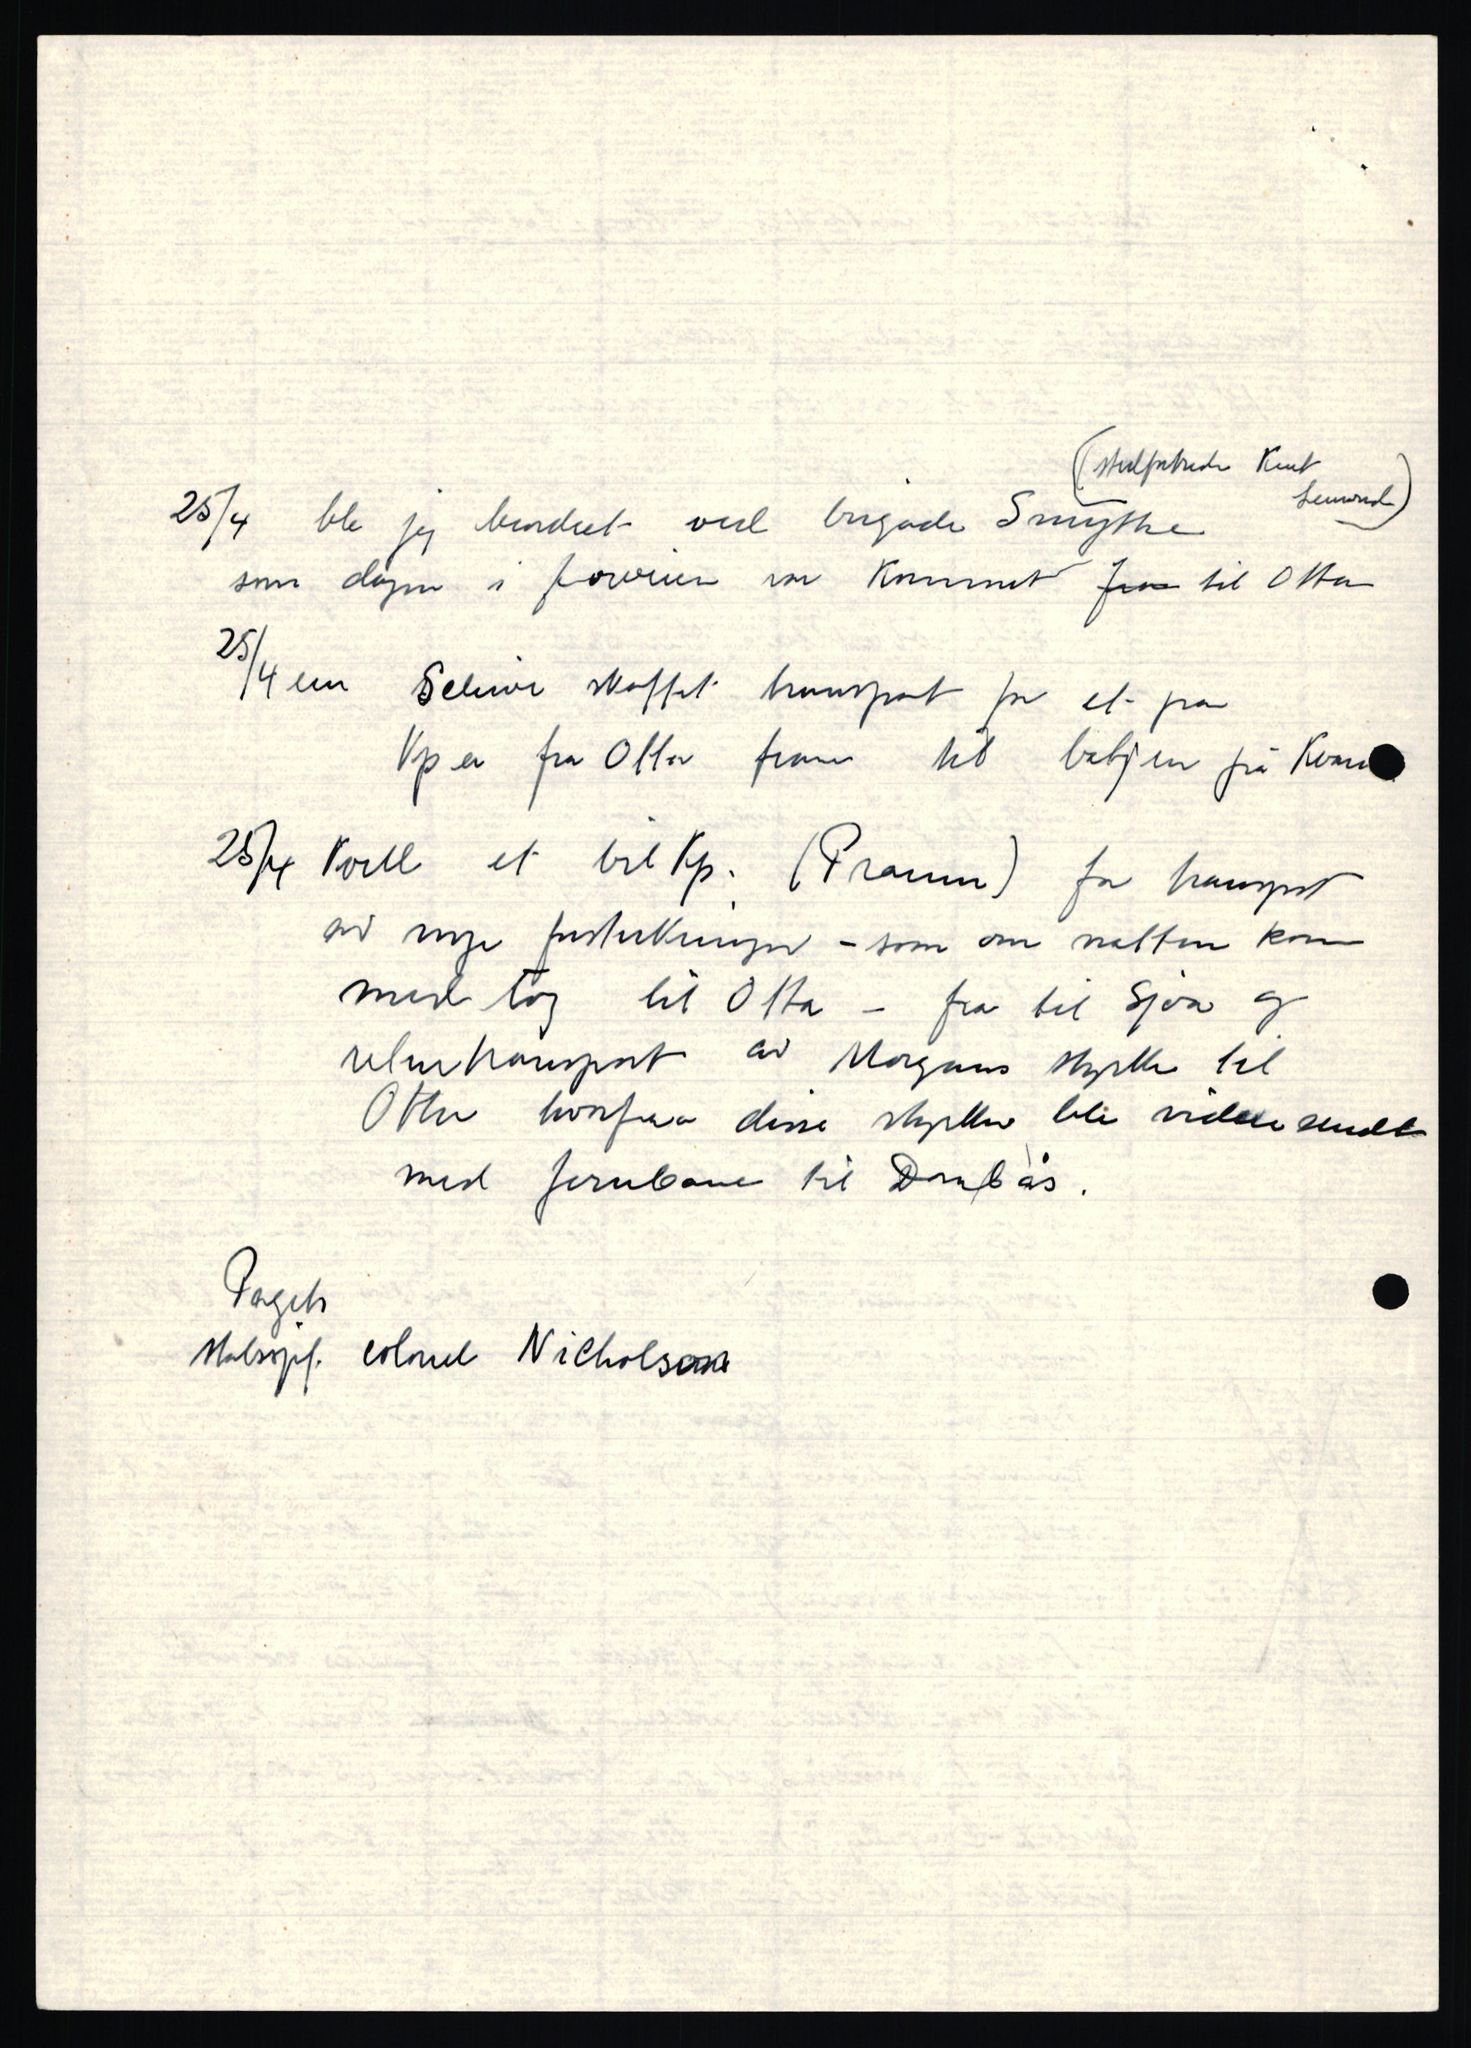 (stedfortreder Kent
Lemond)
25/4 ble jeg beordret ved brigade Smythe
som dagen i forveien var kommet fra til Otta
25/4 em Scheive skaffet transport for et par
Kp er fra Otta fram til linjen på Kvam
25/4 Kveld et bil Kp. (Pramm) for transport
av nye forsterkninger – som om natten kom
med tog til Otta – fra til Sjoa og
returtransport av Morgans styrke til
Otta hvorfra disse styrker ble videresendt
med jernbane til Dombås.
Pagets
stabssjef. colonel Nicholson